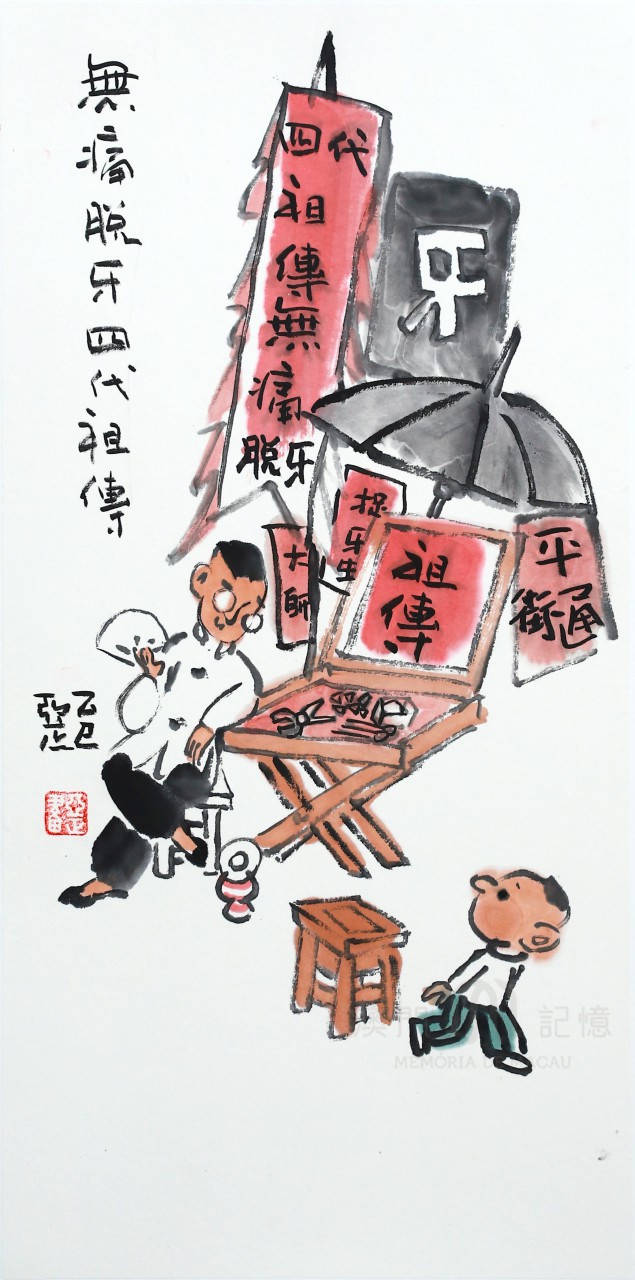 無痛脫牙四代祖傳
四代
祖傳無痛
脫牙
牙
捉牙
生
大師
祖傳
平通
街
乙巳
亞正
澳門記憶
MEMÓRIA DE MACAU